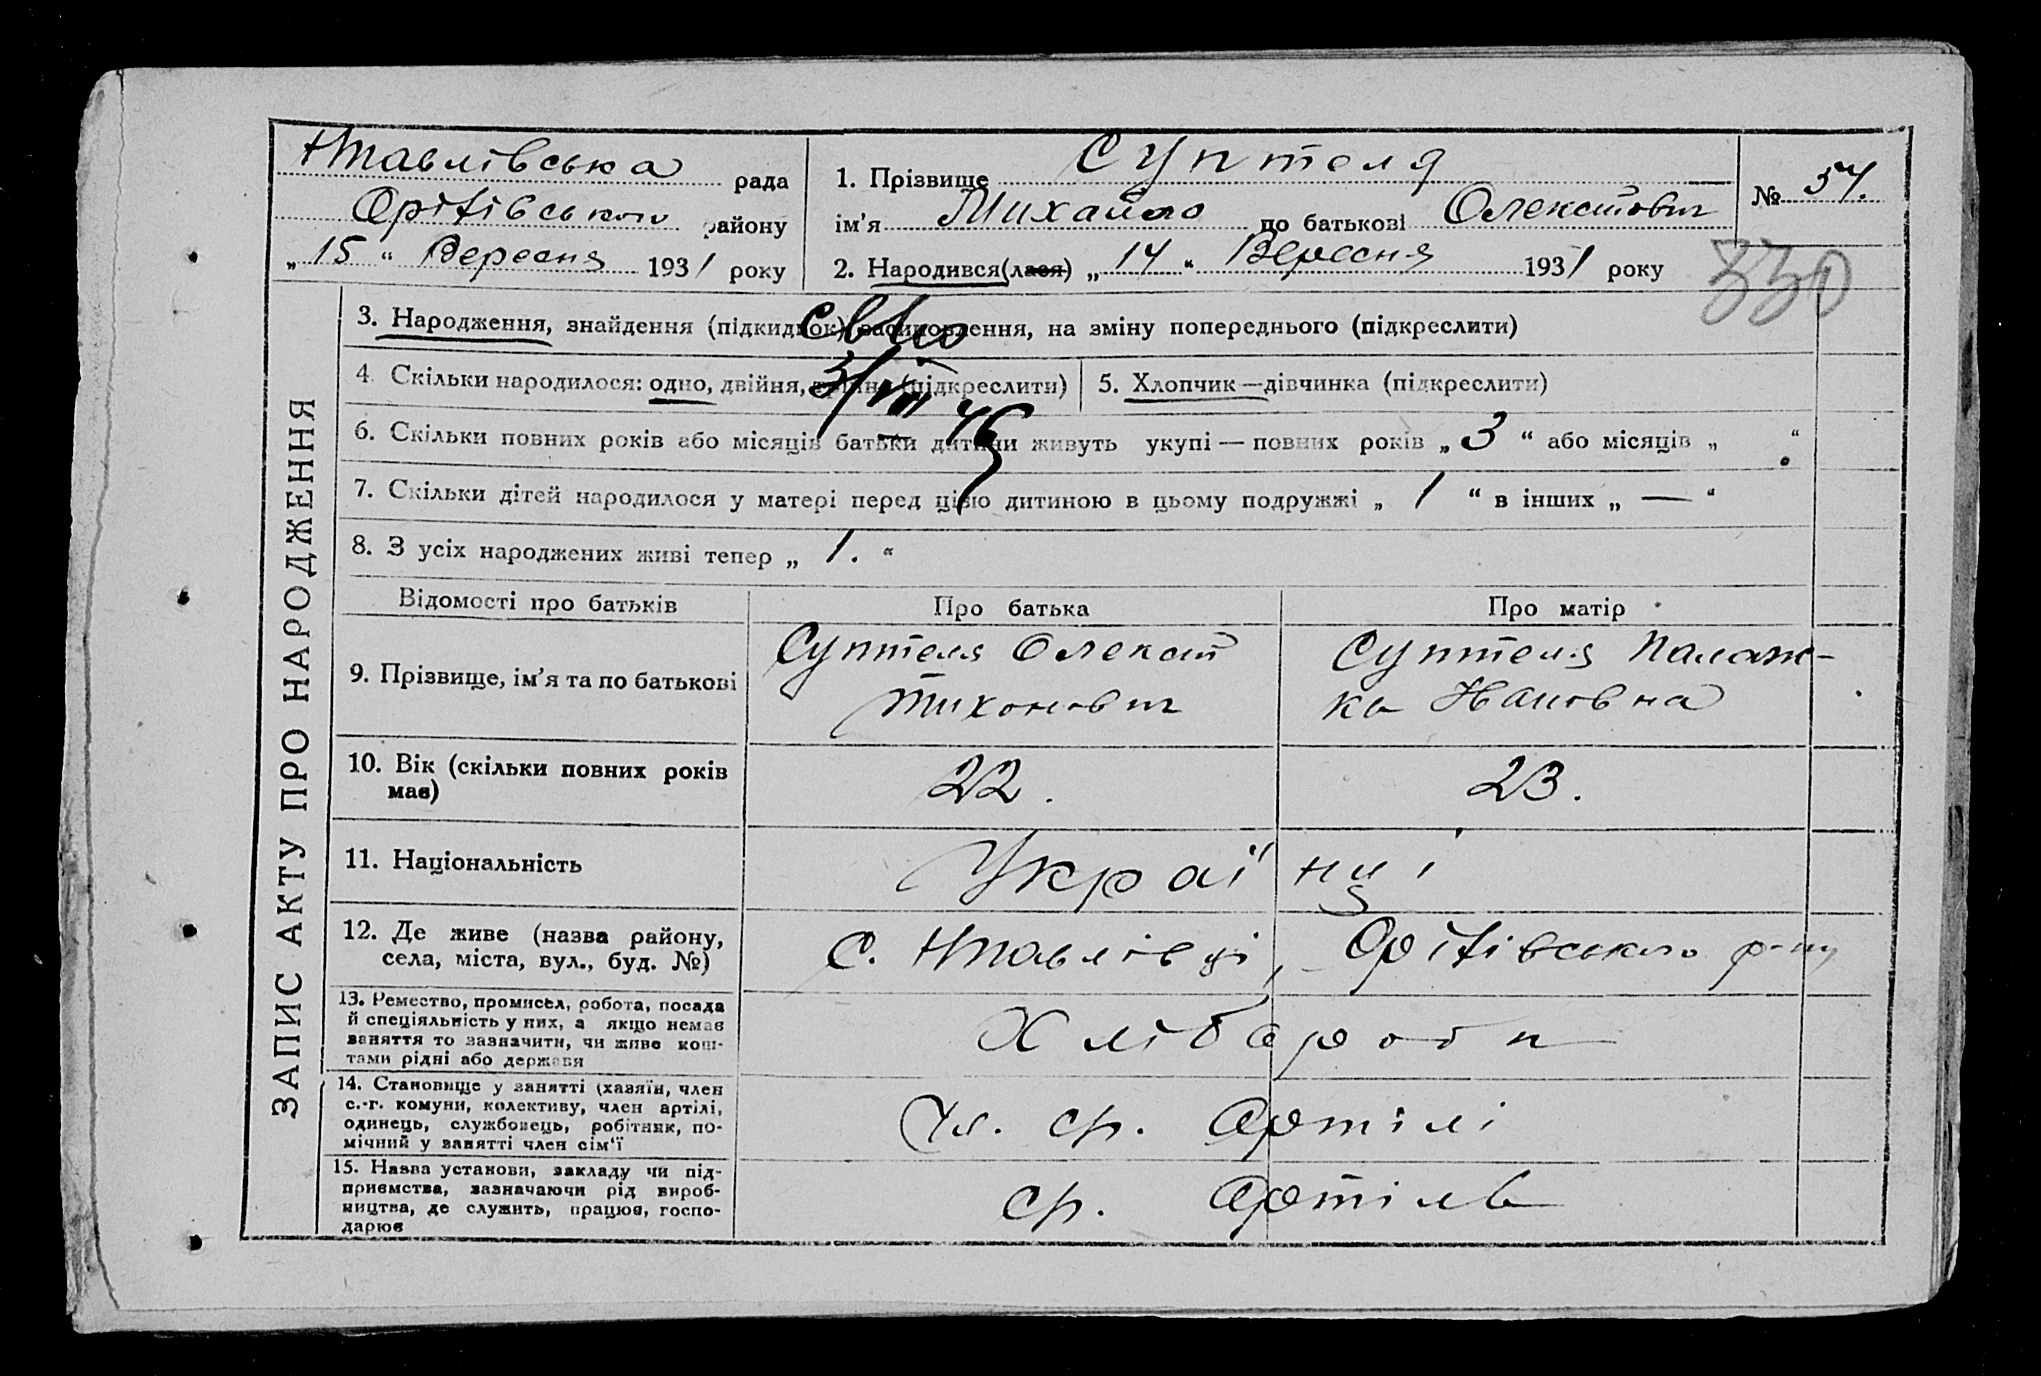 рада
району
„ 15 “ Вересня 1931 року
1. Прізвище Суптеля
ім’я Михайло по батькові
2. Народився(лася) „ 14 “ Вересня 1931 року
№ 54.
330
ЗАПИС АКТУ ПРО НАРОДЖЕННЯ
3. Народження, знайдення (підкидьок) засиновлення, на зміну попереднього (підкреслити)
4. Скільки народилося: одно, двійня, трійня (підкреслити)
5. Хлопчик—дівчинка (підкреслити)
6. Скільки повних років або місяців батьки дитини живуть укупі — повних років „ 3 “ або місяців „ “
7. Скільки дітей народилося у матері перед цією дитиною в цьому подружжі „ 1 “ в інших „ — “
8. З усіх народжених живі тепер „ 1. “
Відомості про батьків
Про батька
Про матір
9. Прізвище, ім’я та по батькові
Суптеля
Тихонович
Суптеля Палаж-
ка Івановна
10. Вік (скільки повних років
має)
22.
23.
11. Національність
Українці
12. Де живе (назва району,
села, міста, вул., буд. №)
с.
13. Ремество, промисел, робота, посада
й спеціяльність у них, а якщо немає
заняття то зазначити, чи живе кош-
тами рідні або держави
Хлібороби
14. Становище у занятті (хазяїн, член
с.-г. комуни, колективу, член артілі,
одинець, службовець, робітник, по-
мічний у занятті член сім’ї
Чл. ср. Артілі
15. Назва установи, закладу чи під-
приємства, зазначаючи рід вироб-
ництва, де служить, працює, госпо-
дарює
ср. Артіль